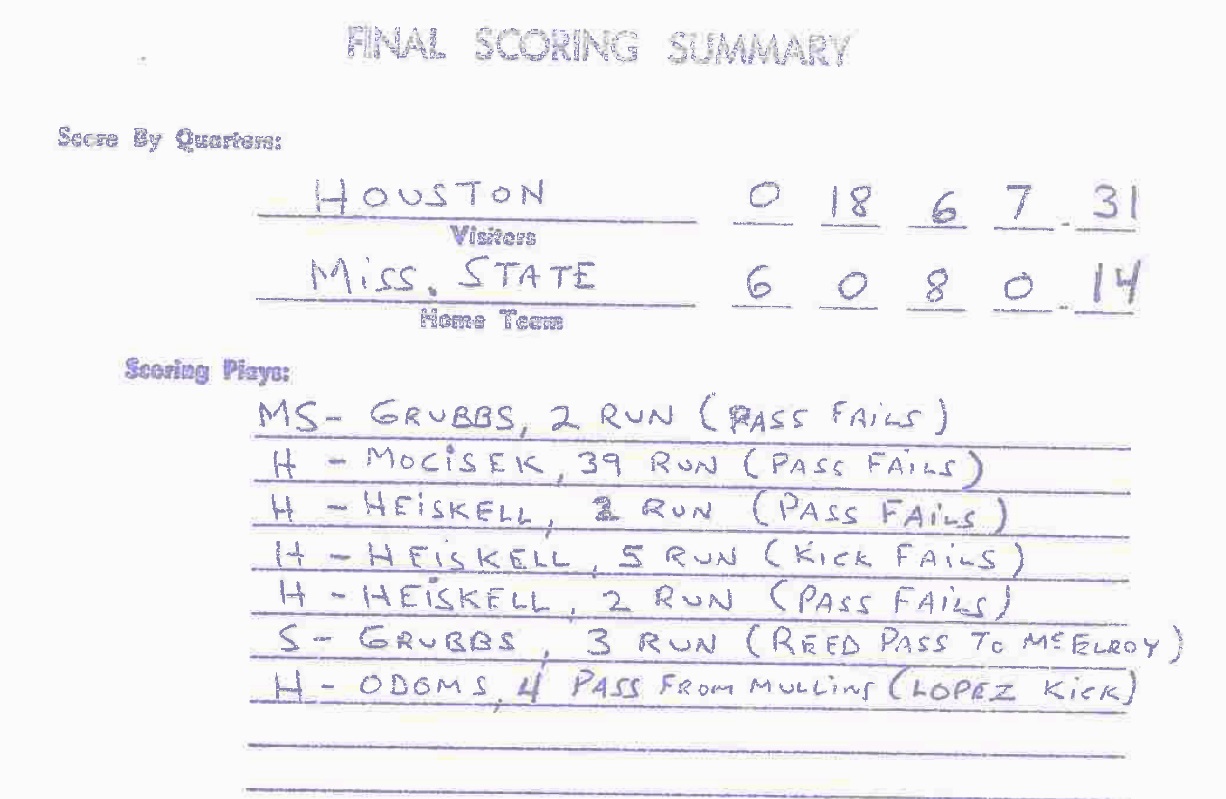 FINAL SCORING SUMMARY
Score By Quarters:
HOUSTON 0 18 6 7 - 31
Visitors
MISS. STATE 6 0 8 0 - 14
Home Team
Scoring Plays:
MS- GRUBBS, 2 RUN (PASS FAILS)
H - MOCISEK, 39 RUN (PASS FAILS)
H - HEISKELL, 2 RUN (PASS FAILS)
H - HEISKELL, 5 RUN (KICK FAILS)
H - HEISKELL, 2 RUN (PASS FAILS)
S - GRUBBS, 3 RUN (REED PASS TO McELROY)
H - ODOMS, 4 PASS FROM MULLINS (LOPEZ KICK)